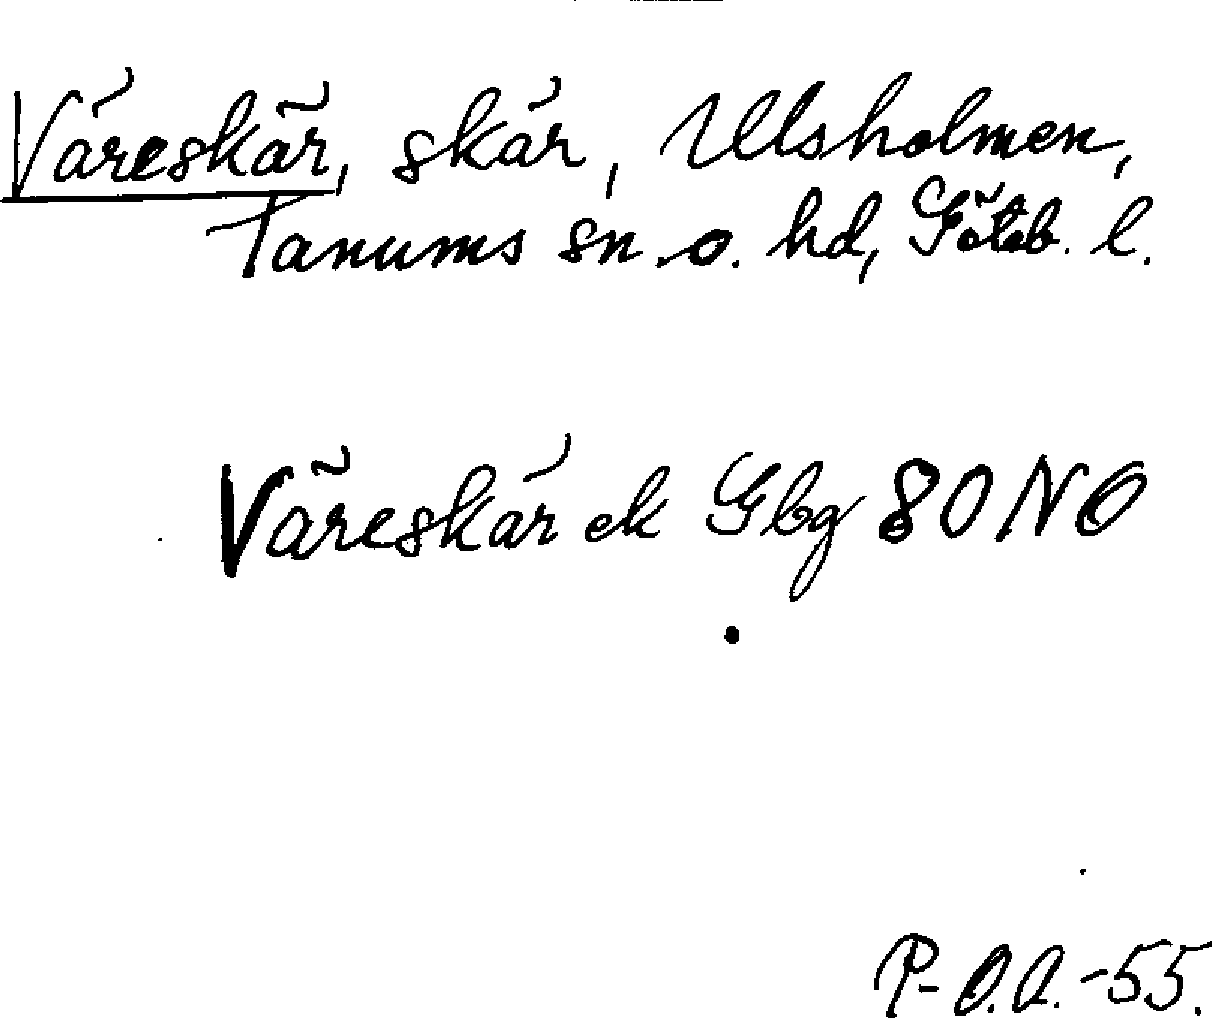 Väreskär, skär, Ulsholmen,
Tanums sn o. hd, Göteb. l.
Väreskär ek Gbg 80 NO
P-O.A.-55.